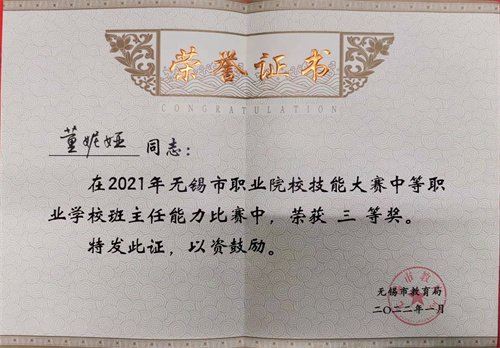 荣誉证书
CONGRATULATION
董妮娅 同志：
在2021年无锡市职业院校技能大赛中等职
业学校班主任能力比赛中，荣获 三 等奖。
特发此证，以资鼓励。
无锡市教育局
二〇二二年一月